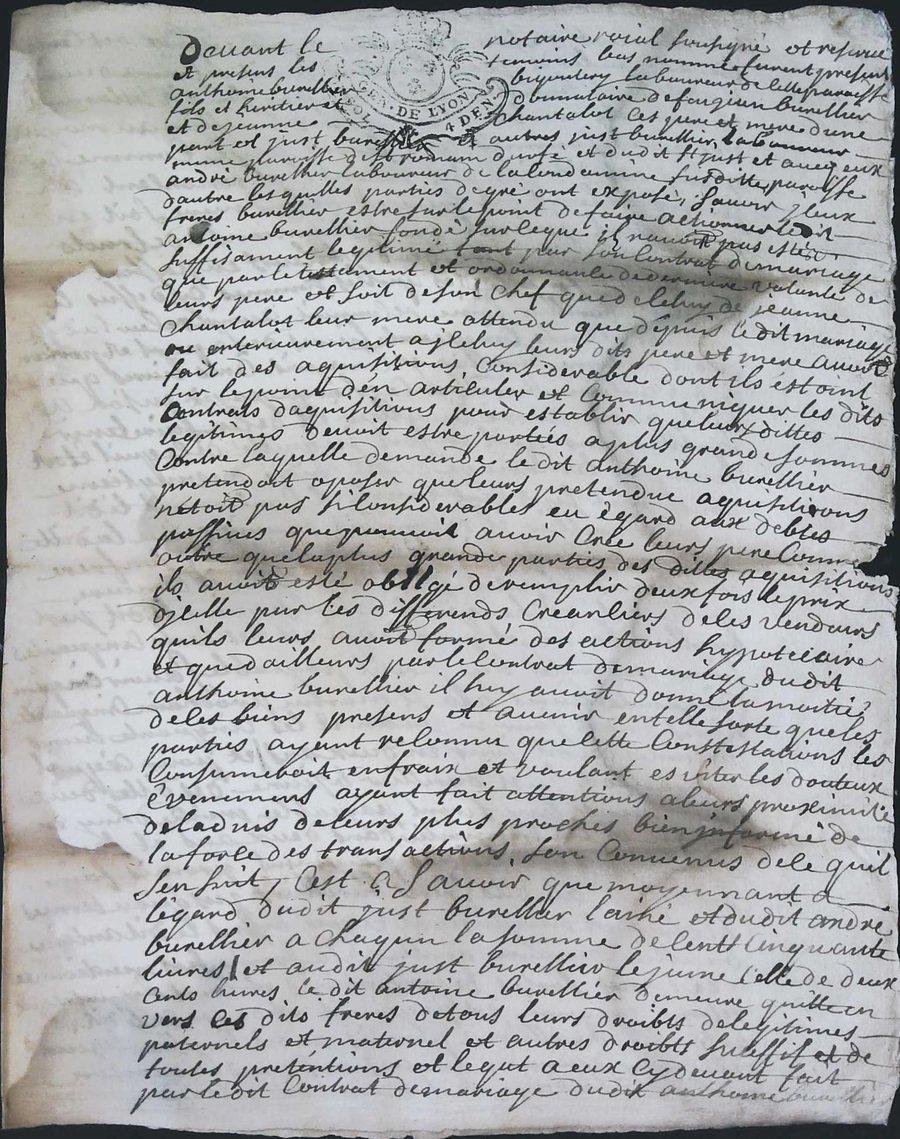 Devant le notaire roial sousigné et reservé
et presens les temoins bas nommé furent present
anthoine burellier laboureur de cette paroisse
fils et heritier et donnataire de feu burellier
et de jeanne Chantalot ses pere et mere d'une
GEN. DE LYON
4 DEN
part et just burellier et autres just burellier laboureur
meme paroisse de st romain d'urfé et dudit st just et avec eux
andré burellier laboureur de la susditte paroisse
dautre lesquelles parties de gré ont exposé, savoir yceux
freres burellier estre sur le point de faire actionner ledit
antoine burellier fondé sur ce que ils n'avoit pas esté
suffisament legitimé tant par son Contrat de mariage
que par le testament et ordonnance de derniere volonté de
leurs pere et soit de son chef que de celuy de jeanne
Chantalot leur mere attendu que depuis le dit mariage
ou enterieurement a jceluy leurs dits pere et mere avoit
fait des aquisitions Considerable dont ils estoint
sur le point d'en articuler et Communiquer les dits
Contrats daquisitions pour establir que leurs dittes
legitimes devoit estre portées a plus grande sommes
Contre laquelle demande le dit anthoine burellier
pretendoit oposer que leurs pretendue aquisitions
n'etoit pas si Considerables eu égard aux debtes
passives que pouvoit avoir Cree leurs pere Comme
outre que la plus grande parties des dittes aquisitions
ils avoit esté obligé de remplir deux fois le prix
djcelle par les differends Creanciers de ses vendeurs
quils leurs avoit formé des actions hypotecaire
et que dailleurs par le Contrat de mariage dudit
anthoine burellier il luy avoit donné la moitié
de ses biens presens et avenir en telle sorte que les
parties ayant reconnu que cette Contestations les
Consumeroit en fraix et voulant esviter les douteux
évenemens ayant fait attentions a leurs proximité
de ladvis de leurs plus proches bien informé de
la force des transactions, son Convenus de ce quil
sensuit, Cest a Savoir que moyennant a
légard dudit just burellier lainé et dudit andré
burellier a chaqun la somme de Cent Cinquante
livres et audit just burellier le jeune Celle de deux
cents livres le dit antoine burellier demeure quitte en
vers ces dits freres de tous leurs droibts de legitimes
paternels et maternel et autres droibts sucessif et de
toutes preténtions et legat a eux Cy devant fait
par le dit Contrat de mariage dudit anthoine burellier